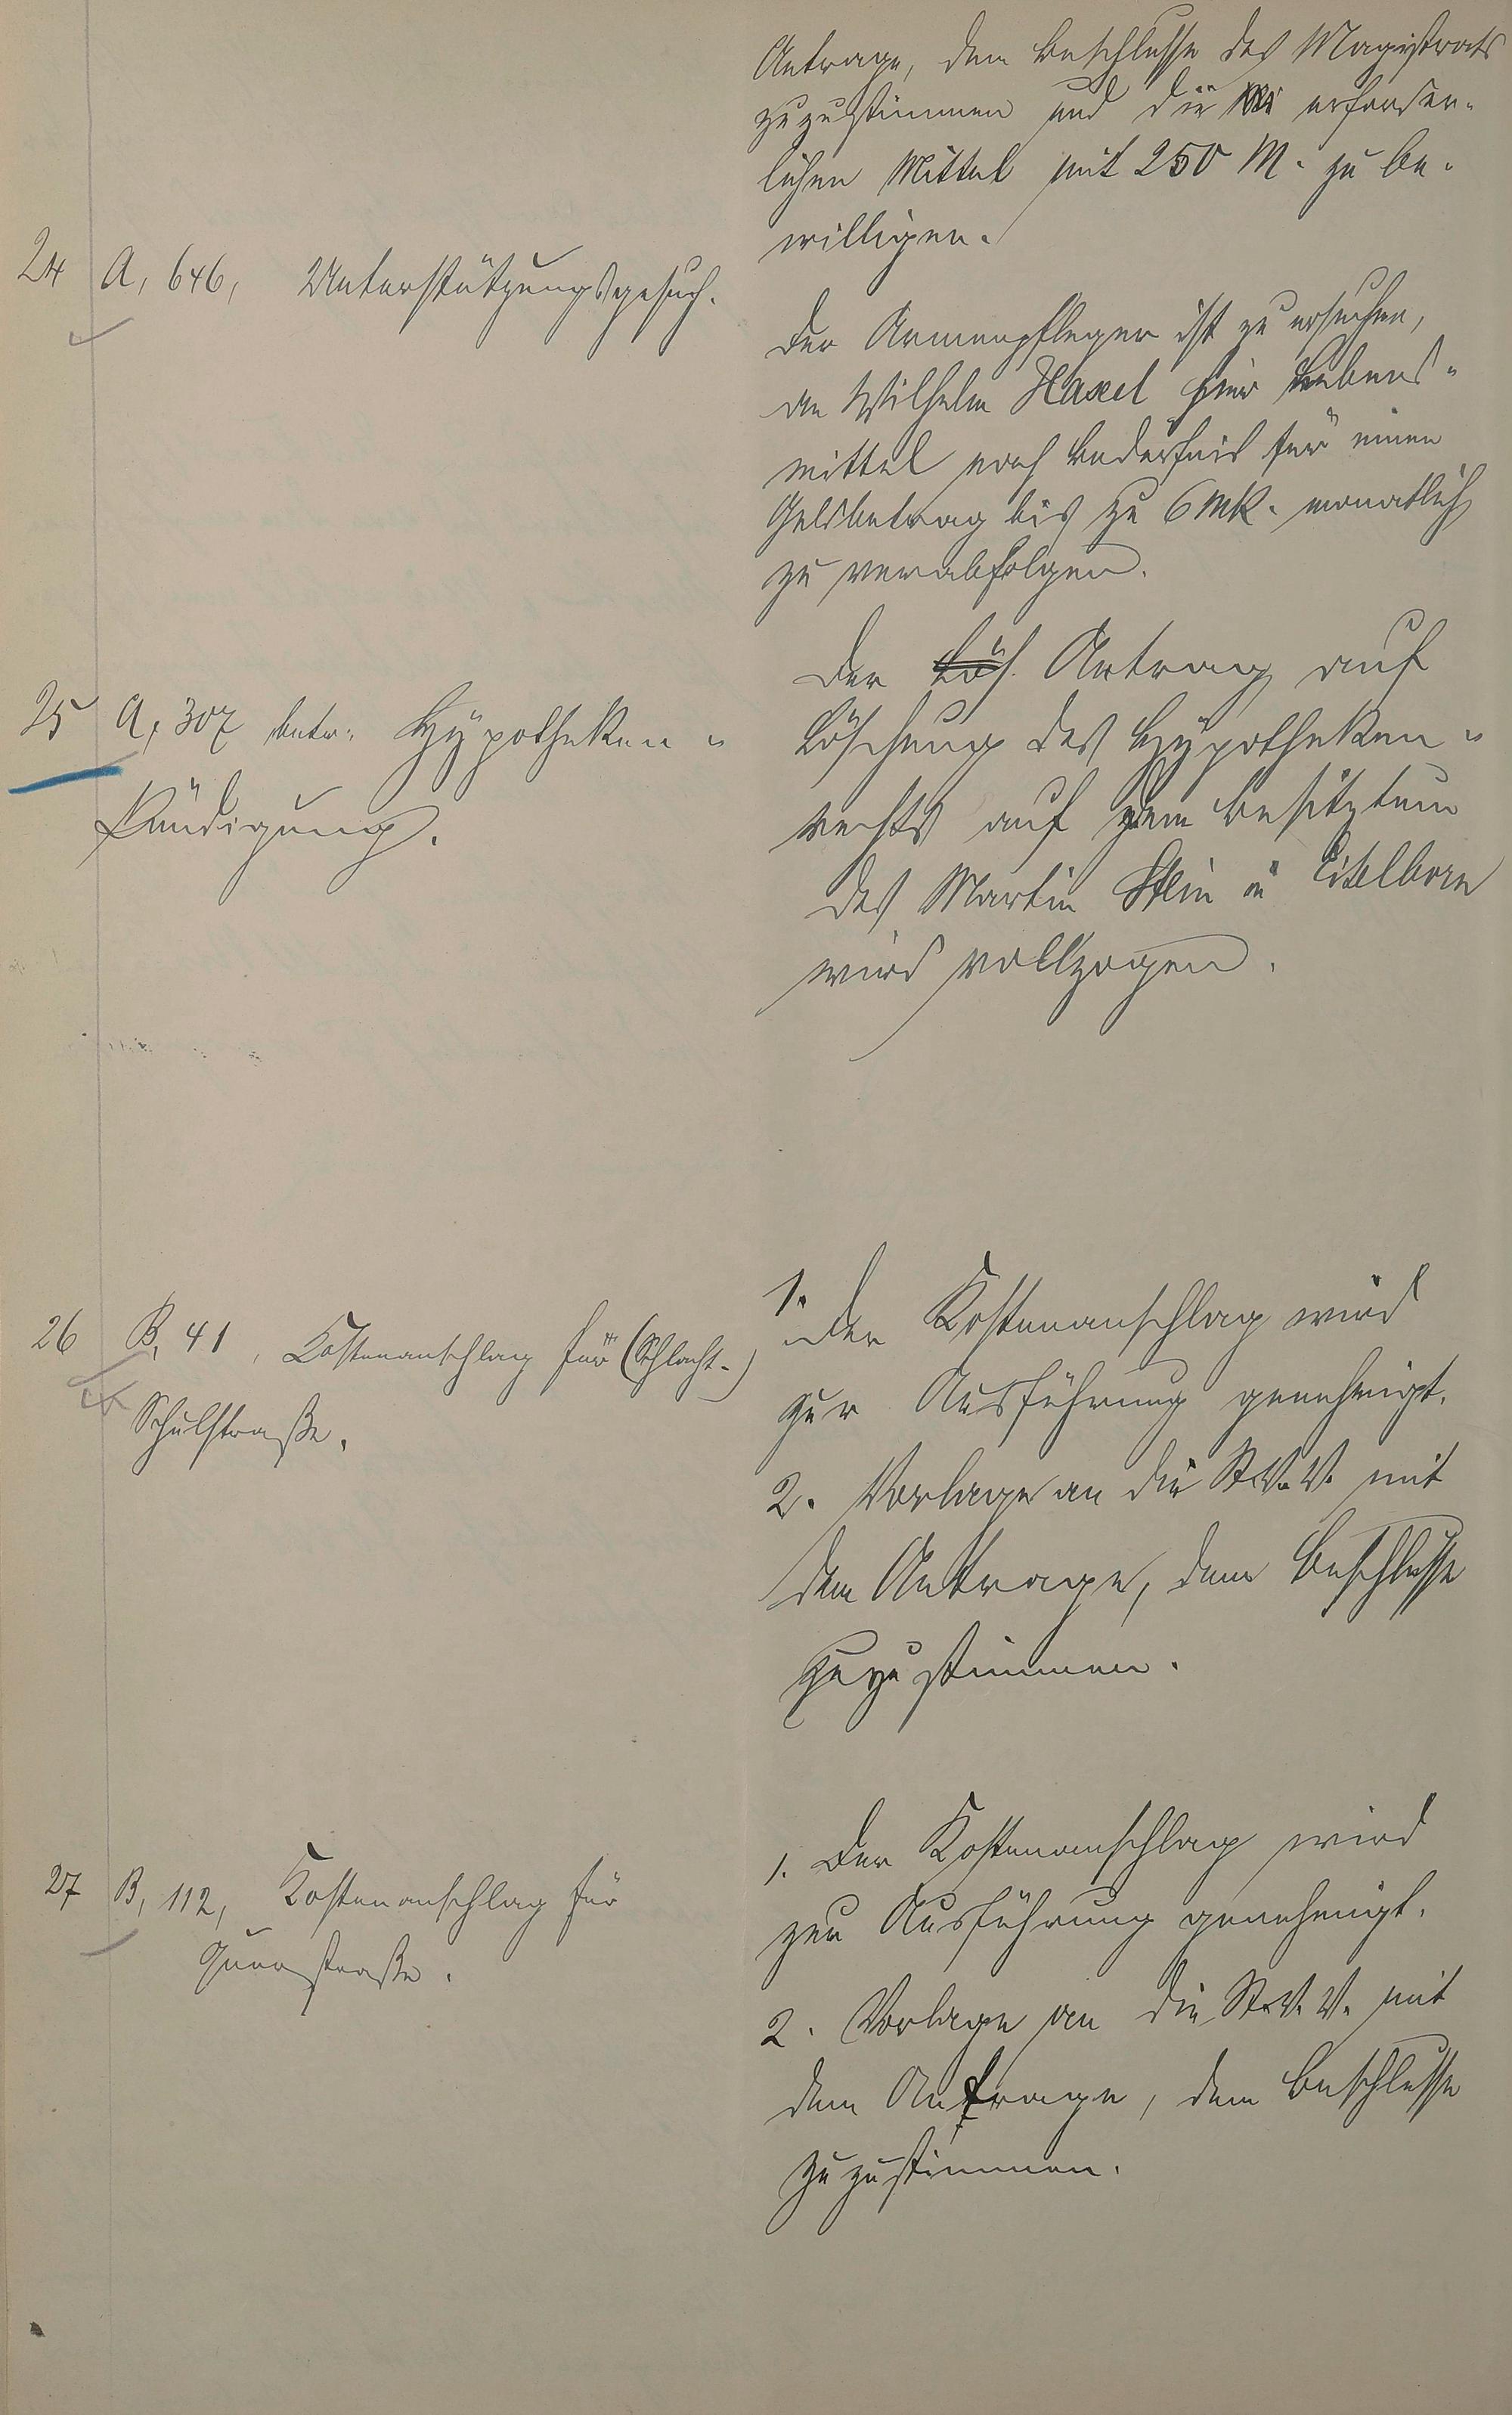 Antrage, dem Beschlusse des Magistrats
zuzustimmen und die erforder-
lichen Mittel mit 250 M. zu be-
willigen.
24 A, 646, Unterstützungsgesuch.
Der Armenpfleger ist zu ersuchen,
an Wilhelm Haxel hier Lebens-
mittel nach Bedürfnis für einen
Geldbetrag bis zu 6 Mk. monatlich
zu verabfolgen.
25 A, 307 betr. Hypotheken-
kündigung.
Der Antrag auf
Löschung des Hypotheken-
rechts auf dem Besitztum
des Martin Stein in Eitelborn
wird vollzogen.
26 B, 41, Kostenanschlag für (Schlacht-)
Schulstraße.
1. Der Kostenanschlag wird
zur Ausführung genehmigt.
2. Vorlage an die St.V.V. mit
dem Antrage, dem Beschlusse
zuzustimmen.
27 B, 112, Kostenanschlag für
Querstraße.
1. Der Kostenanschlag wird
zur Ausführung genehmigt.
2. Vorlage an die St.V.V. mit
dem Antrage, dem Beschlusse
zuzustimmen.